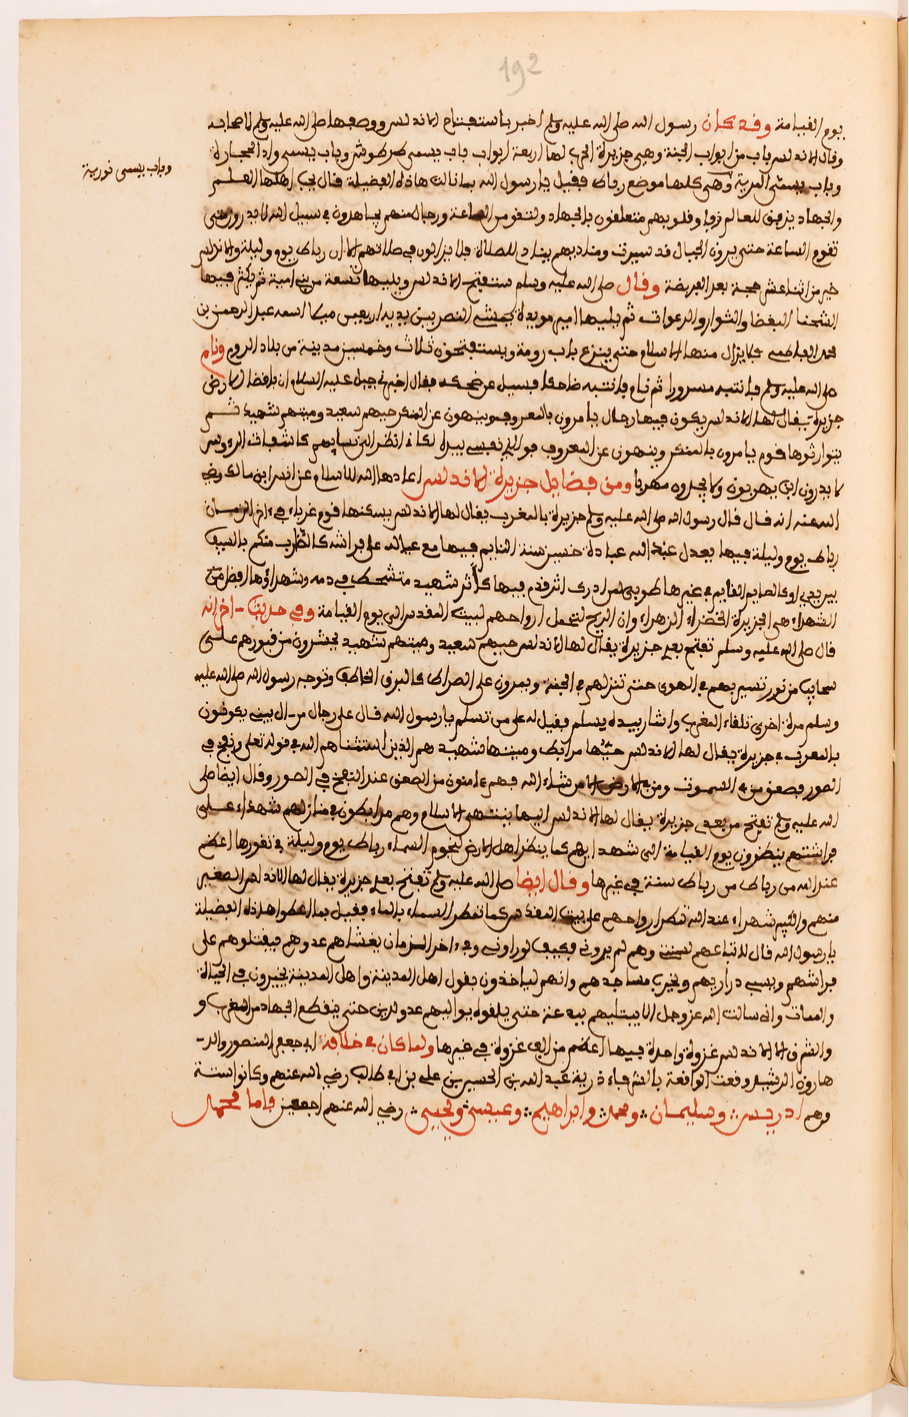 192
يوم القيامة وقد كان رسول الله صلى الله عليه وسلم اخبر باستفتاح الاندلس ووصفها صلى الله عليه وسلم لاصحابه
وقال الاندلس باب من ابواب الجنة وهي جزيرة لها اربعة ابواب باب يسمى طرطوشة وباب يسمى واد الحجارة
وباب يسمى نورية
وباب يسمى المرية وهي كلها موضع رباط فقيل يا رسول الله بما نالت هاذه الفضيلة قال يحب اهلها العلم
والجهاد متعلقون بالجهاد ولتقومن الساعة ورجال منهم يجاهدون في سبيل الله لا يدرون متى
تقوم الساعة حتى يرون الجبال قد سيرت ومناديهم ينادي للصلاة فلا يزالون في صلاتهم الا ان رباط يوم وليلة
خير من اثنا عشر حجة بعد الفريضة وقال صلى الله عليه وسلم ستفتح الاندلس ويليها تسعة من بني امية ثم يكثر فيها
الشحنا البغضا والثوار والدعوات ثم يليها امير اسمه عبد الرحمن بن
محمد الفاطمي فلا يزال منها الاسلام حتى ينزع باب رومة ويستفتحون ثلاث وخمسين مدينة من بلاد الروم ونام
صلى الله عليه وسلم فانتبه مسرورا ثم نام فانتبه ضاحكا فسيل عن ضحكه فقال اخبرني جبريل عليه السلام ان باقصا الارض
جزيرة يقال لها الاندلس يكون فيها رجال يامرون بالمعروف وينهون عن المنكر حيهم سعيد وميتهم شهيد ثم
يتوارثوها قوم يامرون بالمنكر وينهون عن المعروف فوالذي نفسي بيده لكاني انظر الى نسايهم كاشفات الرءوس
لا يدرون اين يهربون ولا يجدون مهربا ومن فضايل جزيرة الاندلس اعادها الله للاسلام عن انس ابن مالك رضي
الله عنه انه قال قال رسول الله صلى الله عليه وسلم جزيرة بالمغرب يقال لها الاندلس يسكنها قوم غرباء في اخر الزمان
رباط يوم وليلة فيها يعدل عبادة خمسين سنة النايم فيها مع عياله على فراشه كالضارب منكم بالسيف
بين يدي او كالصايم القايم في غيرها طوبى لمن ادرك اثر قدم فيها كاثر شهيد متشحط في دمه وشهداؤها افضل
الشهداء هي الجزيرة الخضراء الزهراء وان الريح لتحمل ارواحهم لبيت المقدس الى يوم القيامة وفي حديث اخر انه
قال صلى الله عليه وسلم تفتح بعد جزيرة يقال لها الاندلس حيهم سعيد وميتهم شهيد يحشرون من قبورهم على
سحايب من نور تسير بهم في الهوى حتى تنزلهم في الجنة ويمرون على الصراط كالبرق الخاطف وتوجه رسول الله صلى الله عليه
وسلم مرة اخرى تلقاء المغرب واشار بيده يسلم فقيل له على من تسلم يا رسول الله قال على رجال من يكونون
بالمغرب في جزيرة يقال لها الاندلس حيها مرابط وميتها شهيد هم الذين استثناهم الله في قوله تعلى ونفخ في
الصور فصعق من في السموت ومن في الارض الا من شاء الله فهم ءامنون من الصعق عند النفخ في الصور وقال ايضا صلى
الله عليه وسلم تفتح من بعدي جزيرة يقال لها الاندلس اليها ينتهى الاسلام وهم مرابطون في منازلهم شهداء على
فراشتهم ينظرون يوم القيامة الى شهدايهم كما ينظر اهل الارض لنجوم السماء رباط يوم وليلة في ثغورها اعظم
عند الله من رباط من رباط سنة في غيرها وقال ايضا صلى الله عليه وسلم تفتح بعد جزيرة يقال لها الاندلس الصغير
منهم والكبير شهداء عند الله تنظر ارواحهم على بيت المقدس كما تنظر السماء بالماء فقيل بما اعطوا هاذه الفضيلة
يا رسول الله قال وهم لم يروني فكيف لو راوني وفي ءاخر الزمان يغشاهم عدوهم فيقتلوهم على
فراشهم ويسبي دراريهم ويخرب مساجدهم وانهم لياخذون بقول اهل المدينة واهل المدينة يخيرون في الحياة
والممات واني سالت الله عز وجل الا يبتليهم حتى يلقوه عدو الدين حتى ينقطع الجهاد من المغرب و
والشرق الا الاندلس غزوة واحدة فيها اعظم من الف غزوة في غيرها ولما كان في خلافة ابي جعفر المنصور والد
هارون الرشيد وقعت الواقعة بالشرفاء ذرية عبد الله بن الحسن بن علي بن ابي طالب رضي الله عنهم وكانوا ستة
وهم ادريس وسليمان ومحمد وابراهيم وعيسى ويحيى رضي الله عنهم اجمعين فاما محمد